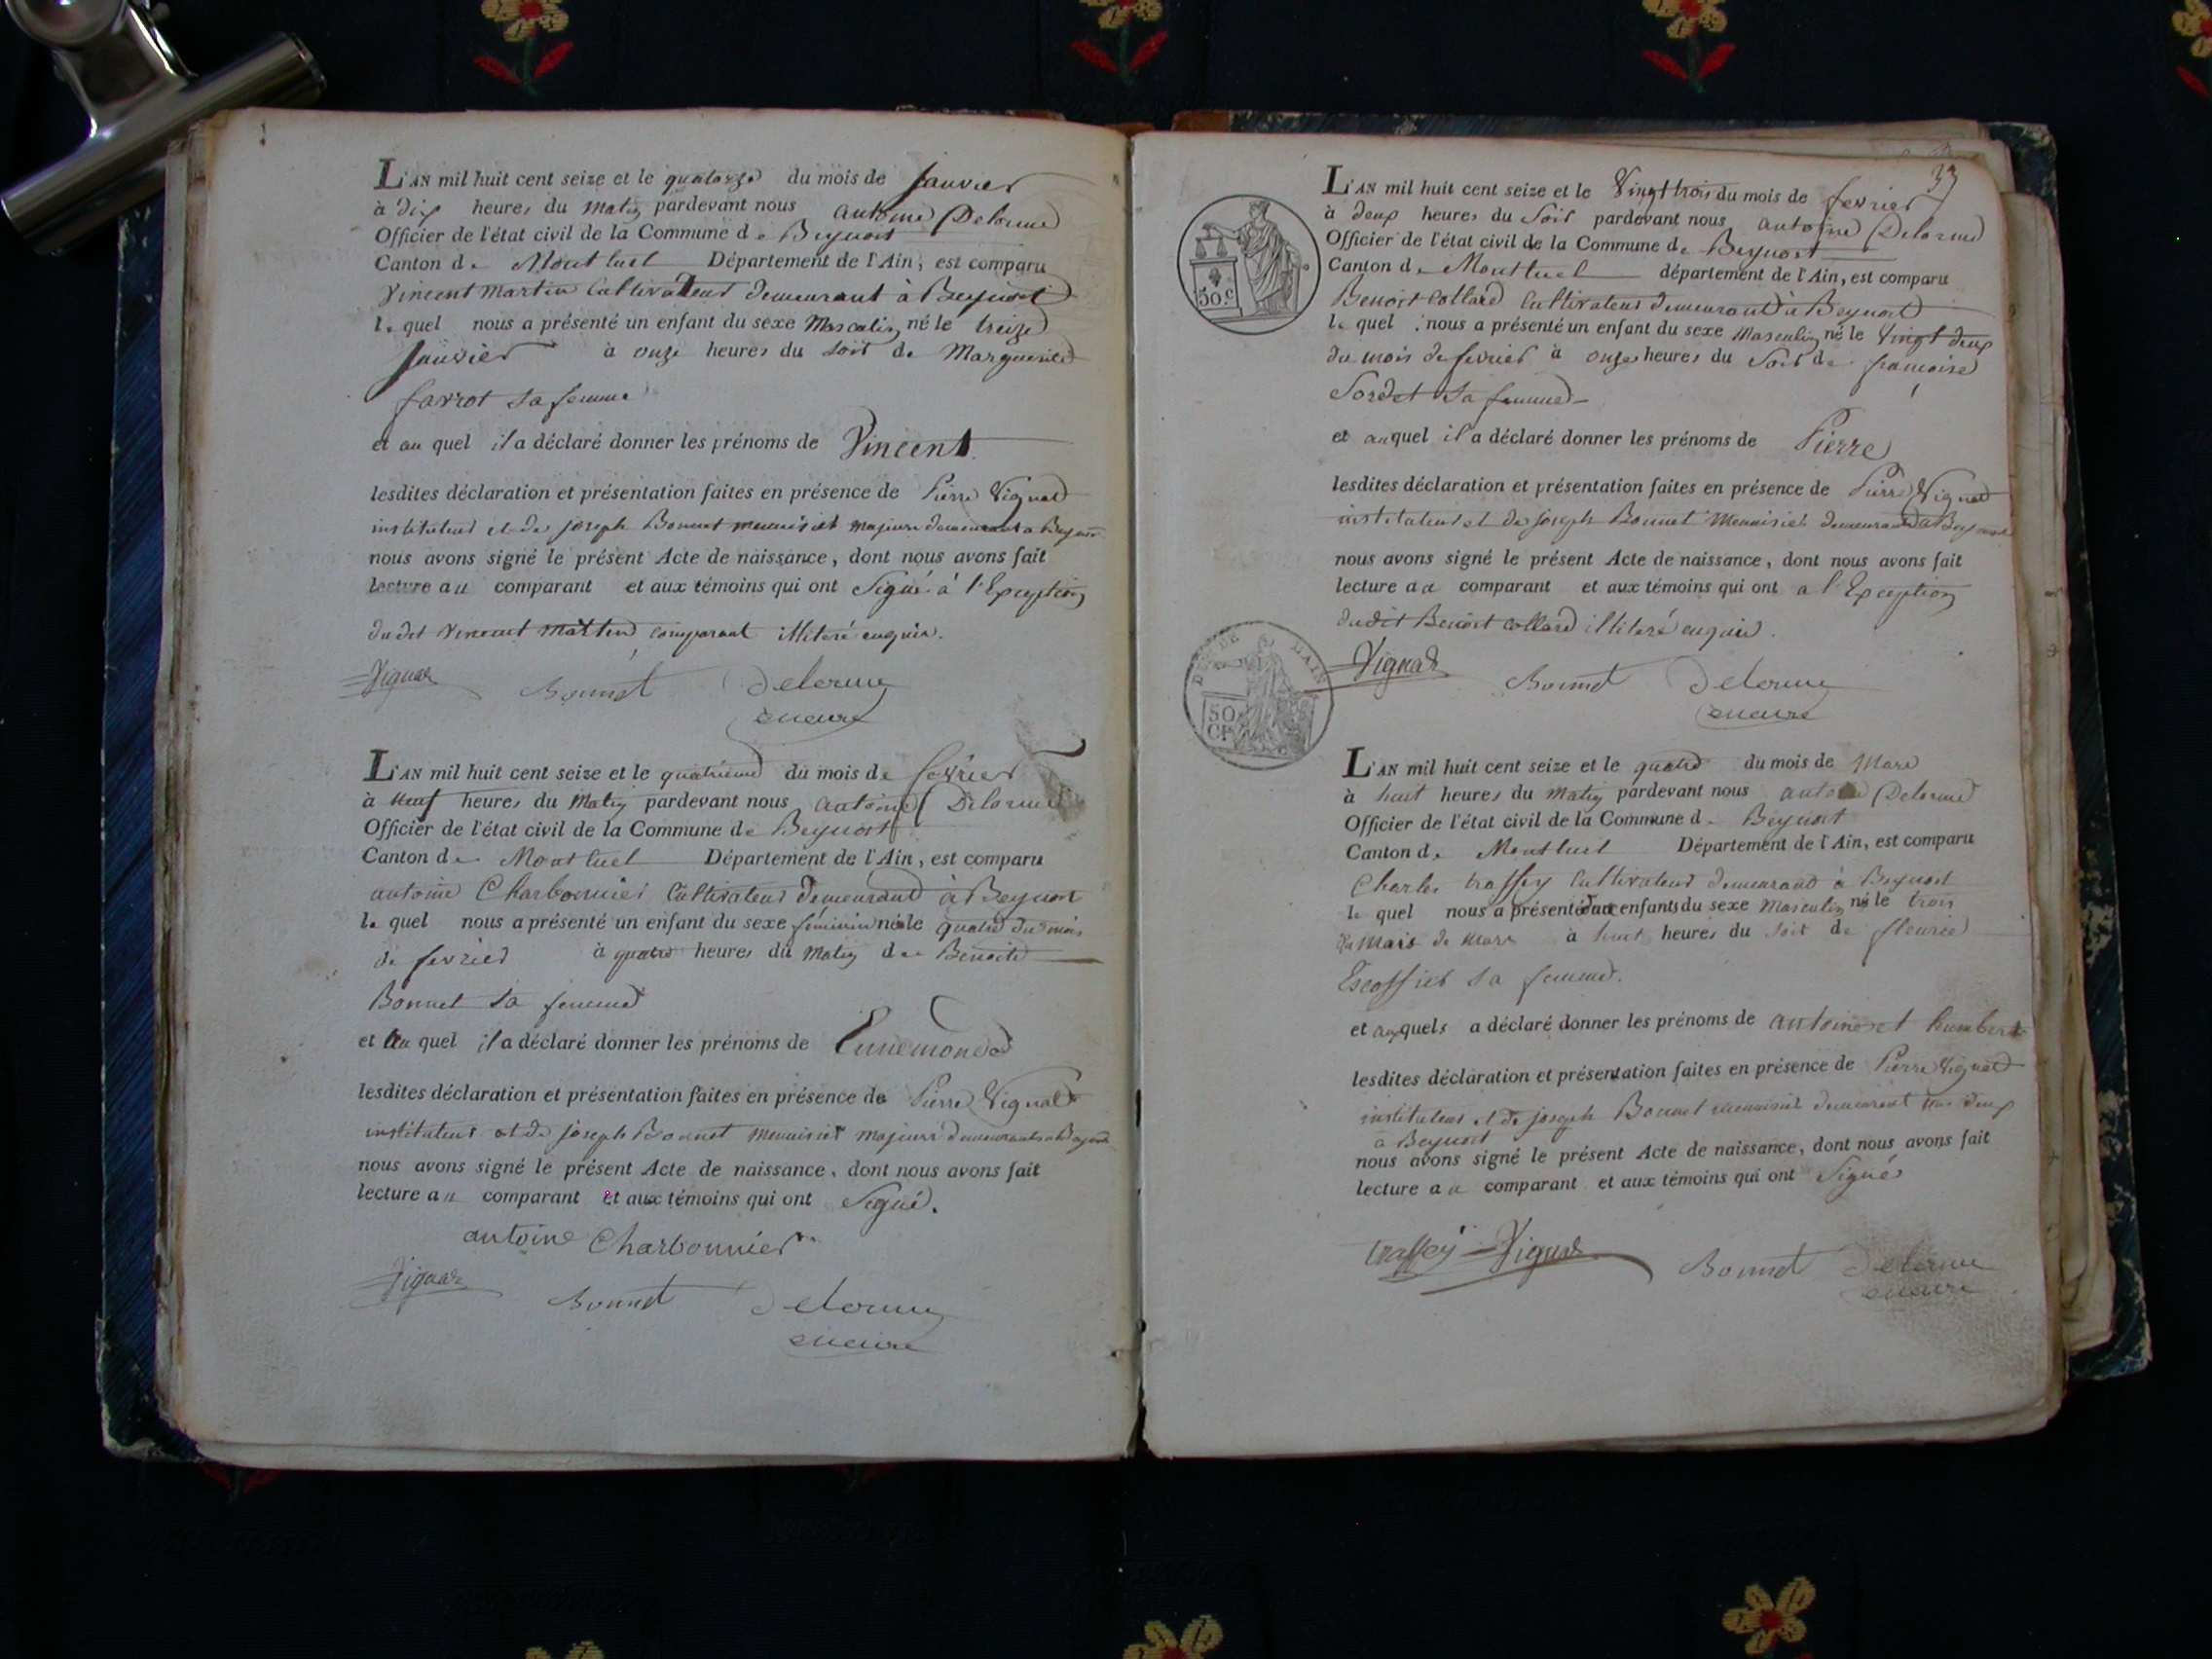 L'AN mil huit cent seize et le quatorze du mois de Janvier
à dix heures du matin pardevant nous antoine Delorme
Officier de l'état civil de la Commune de Beynost
Canton de Montluel Département de l'Ain, est comparu
Vincent Martin Cultivateur demeurant à Beynost
lequel nous a présenté un enfant du sexe Masculin né le treize
Janvier à onze heures du soir de Marguerite
favrot sa femme
et au quel il a déclaré donner les prénoms de Vincent
lesdites déclaration et présentation faites en présence de Pierre Vignat
instituteur et de joseph Bonnet menuisier majeurs demeurants a Beynost
nous avons signé le présent Acte de naissance, dont nous avons fait
lecture au comparant et aux témoins qui ont Signé à l'Exception
dudit Vincent Martin comparant illiteré enquis.
Vignat Bonnet Delorme
maire
L'AN mil huit cent seize et le quatrieme du mois de fevrier
à neuf heures du Matin pardevant nous antoine Delorme
Officier de l'état civil de la Commune de Beynost
Canton de Montluel Département de l'Ain, est comparu
antoine Charbonnier Cultivateur demeurant à Beynost
le quel nous a présenté un enfant du sexe féminin née le quatre du mois
de fevrier à quatre heures du Matin de Benoite
Bonnet sa femme
et au quel il a déclaré donner les prénoms de Ennemonde
lesdites déclaration et présentation faites en présence de Pierre Vignat
instituteur et de joseph Bonnet menuisier majeurs demeurants a Beynost
nous avons signé le présent Acte de naissance, dont nous avons fait
lecture au comparant et aux témoins qui ont Signé.
antoine Charbonnier
Vignat Bonnet Delorme
maire
33
L'AN mil huit cent seize et le Vingt trois du mois de fevrier
à deux heures du Soir pardevant nous antoine Delorme
Officier de l'état civil de la Commune de Beynost
Canton de Montluel département de l'Ain, est comparu
Benoit Collard Cultivateur demeurant à Beynost
le quel nous a présenté un enfant du sexe Masculin né le Vingt deux
du mois de fevrier à onze heures du Soir de francoise
Sordet Sa femme
et auquel il a déclaré donner les prénoms de Pierre
lesdites déclaration et présentation faites en présence de Pierre Vignat
instituteur et de joseph Bonnet Menuisier demeurant a Beynost
nous avons signé le présent Acte de naissance, dont nous avons fait
lecture au comparant et aux témoins qui ont a l'Exception
dudit Benoit Collard illiteré enquis.
Vignat Bonnet Delorme
maire
50 c
DEP DE L'AIN
50
CE
L'AN mil huit cent seize et le quatre du mois de Mars
à huit heures du matin pardevant nous antoine Delorme
Officier de l'état civil de la Commune de Beynost
Canton de Montluel Département de l'Ain, est comparu
Charles traffey Cultivateur demeurant à Beynost
le quel nous a présenté deux enfants du sexe Masculin né le trois
du Mois de Mars à huit heures du soir de fleurie
Escoffier sa femme.
et auxquels a déclaré donner les prénoms de antoine et humbert
lesdites déclaration et présentation faites en présence de Pierre Vignat
instituteur et de joseph Bonnet menuisier demeurant tous deux
a Beynost
nous avons signé le présent Acte de naissance, dont nous avons fait
lecture au comparant et aux témoins qui ont Signés
traffey Vignat Bonnet Delorme
maire